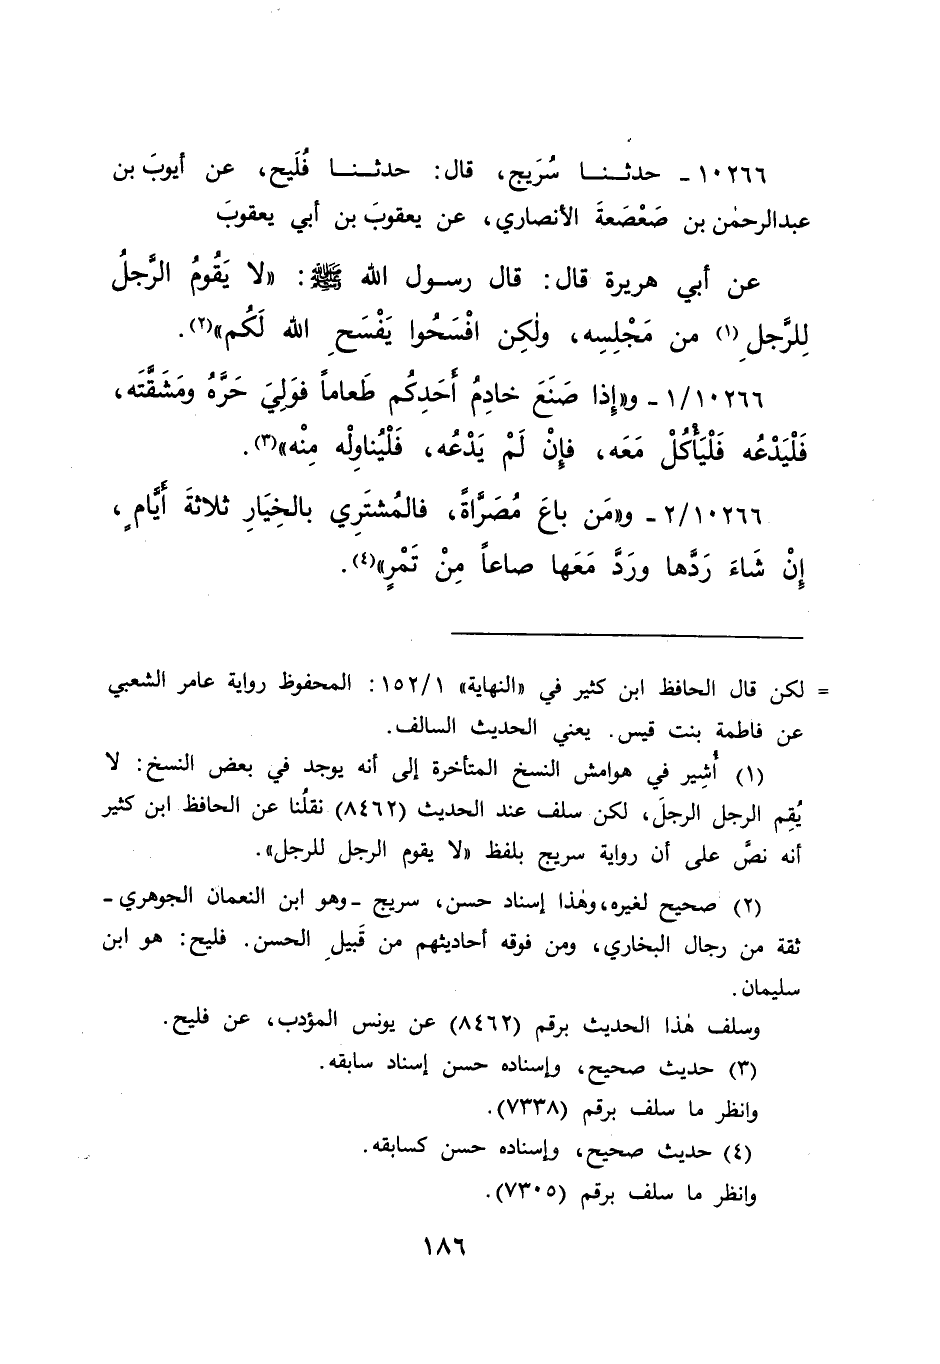 ١٠٢٦٦ - حدثنا سُرَيج، قال: حدثنا فُلَيح، عن أيوبَ بن
عبدالرحمٰن بن صَعْصَعةَ الأنصاري، عن يعقوبَ بن أبي يعقوبَ
عن أبي هريرة قال: قال رسول الله ﷺ: «لا يَقُومُ الرَّجلُ
لِلرَّجلِ(١) من مَجْلِسِه، ولٰكِن افْسَحُوا يَفْسَحِ الله لَكُم»(٢).
١/١٠٢٦٦ - و«إِذا صَنَعَ خادِمُ أَحَدِكُم طَعاماً فوَلِيَ حَرَّهُ ومَشَقَّتَه،
فَلْيَدْعُه فَلْيَأْكُلْ مَعَه، فإِنْ لَمْ يَدْعُه، فَلْيُناوِلْه مِنْه»(٣).
٢/١٠٢٦٦ - و«مَن باعَ مُصَرَّاةً، فالمُشتَرِي بالخِيَارِ ثلاثةَ أَيَّامٍ،
إِنْ شَاءَ رَدَّها ورَدَّ مَعَها صاعاً مِنْ تَمْرٍ»(٤).
= لكن قال الحافظ ابن كثير في «النهاية» ١٥٢/١: المحفوظ رواية عامر الشعبي
عن فاطمة بنت قيس. يعني الحديث السالف.
(١) أُشِير في هوامش النسخ المتأخرة إلى أنه يوجد في بعض النسخ: لا
يُقِم الرجل الرجلَ، لكن سلف عند الحديث (٨٤٦٢) نقلُنا عن الحافظ ابن كثير
أنه نصَّ على أن رواية سريج بلفظ «لا يقوم الرجل للرجل».
(٢) صحيح لغيره، وهٰذا إسناد حسن، سريج -وهو ابن النعمان الجوهري-
ثقة من رجال البخاري، ومن فوقه أحاديثهم من قَبِيلِ الحسن. فليح: هو ابن
سليمان.
وسلف هٰذا الحديث برقم (٨٤٦٢) عن يونس المؤدب، عن فليح.
(٣) حديث صحيح، وإسناده حسن إسناد سابقه.
وانظر ما سلف برقم (٧٣٣٨).
(٤) حديث صحيح، وإسناده حسن كسابقه.
وانظر ما سلف برقم (٧٣٠٥).
١٨٦